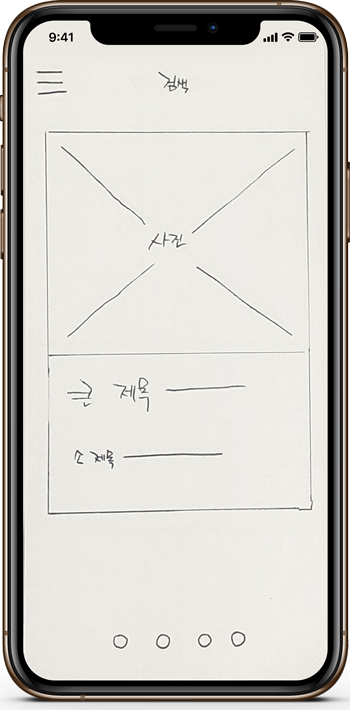 9:41
검색
사진
큰 제목
소 제목